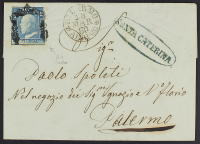 SANTA CATERINA
Sig.r
Paolo Spoleti
Nel negozio dei Sig.ri Ignazio e V. Florio
Palermo